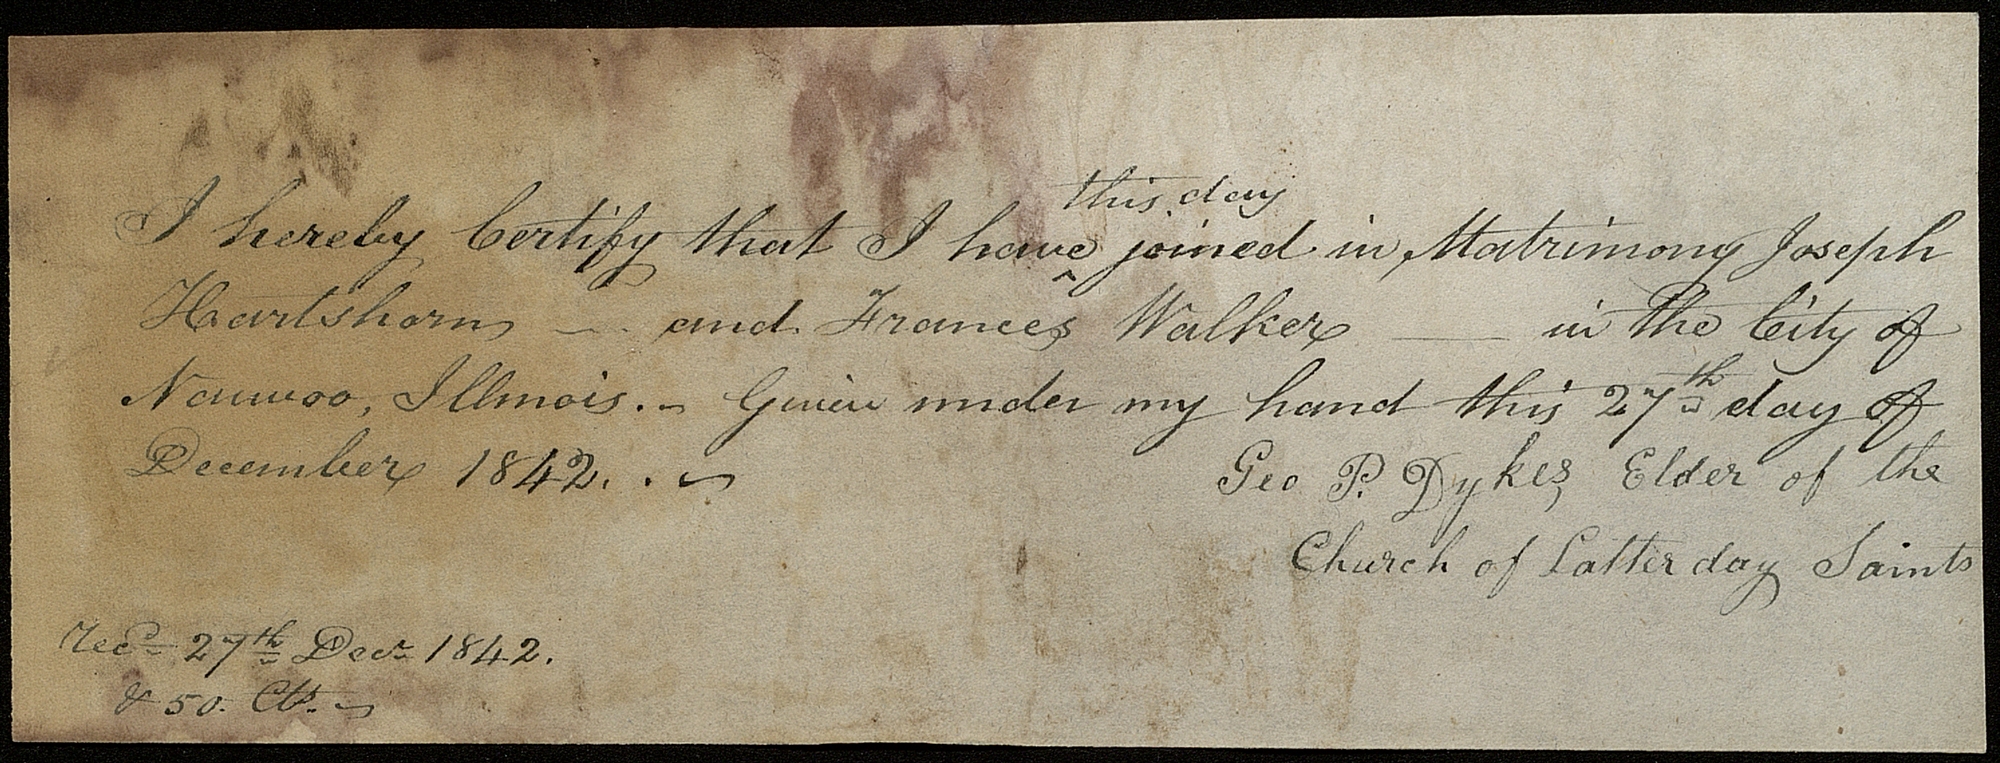 I hereby Certify that I have ^this day joined in Matrimony Joseph
Hartshorn — and Frances Walker — in the City of
Nauvoo, Illinois. – Given under my hand this 27th day of
December 1842. . ~
Geo P. Dykes, Elder of the
Church of Latter day Saints
Recd 27th Decr 1842.
& 50. Cts. ~